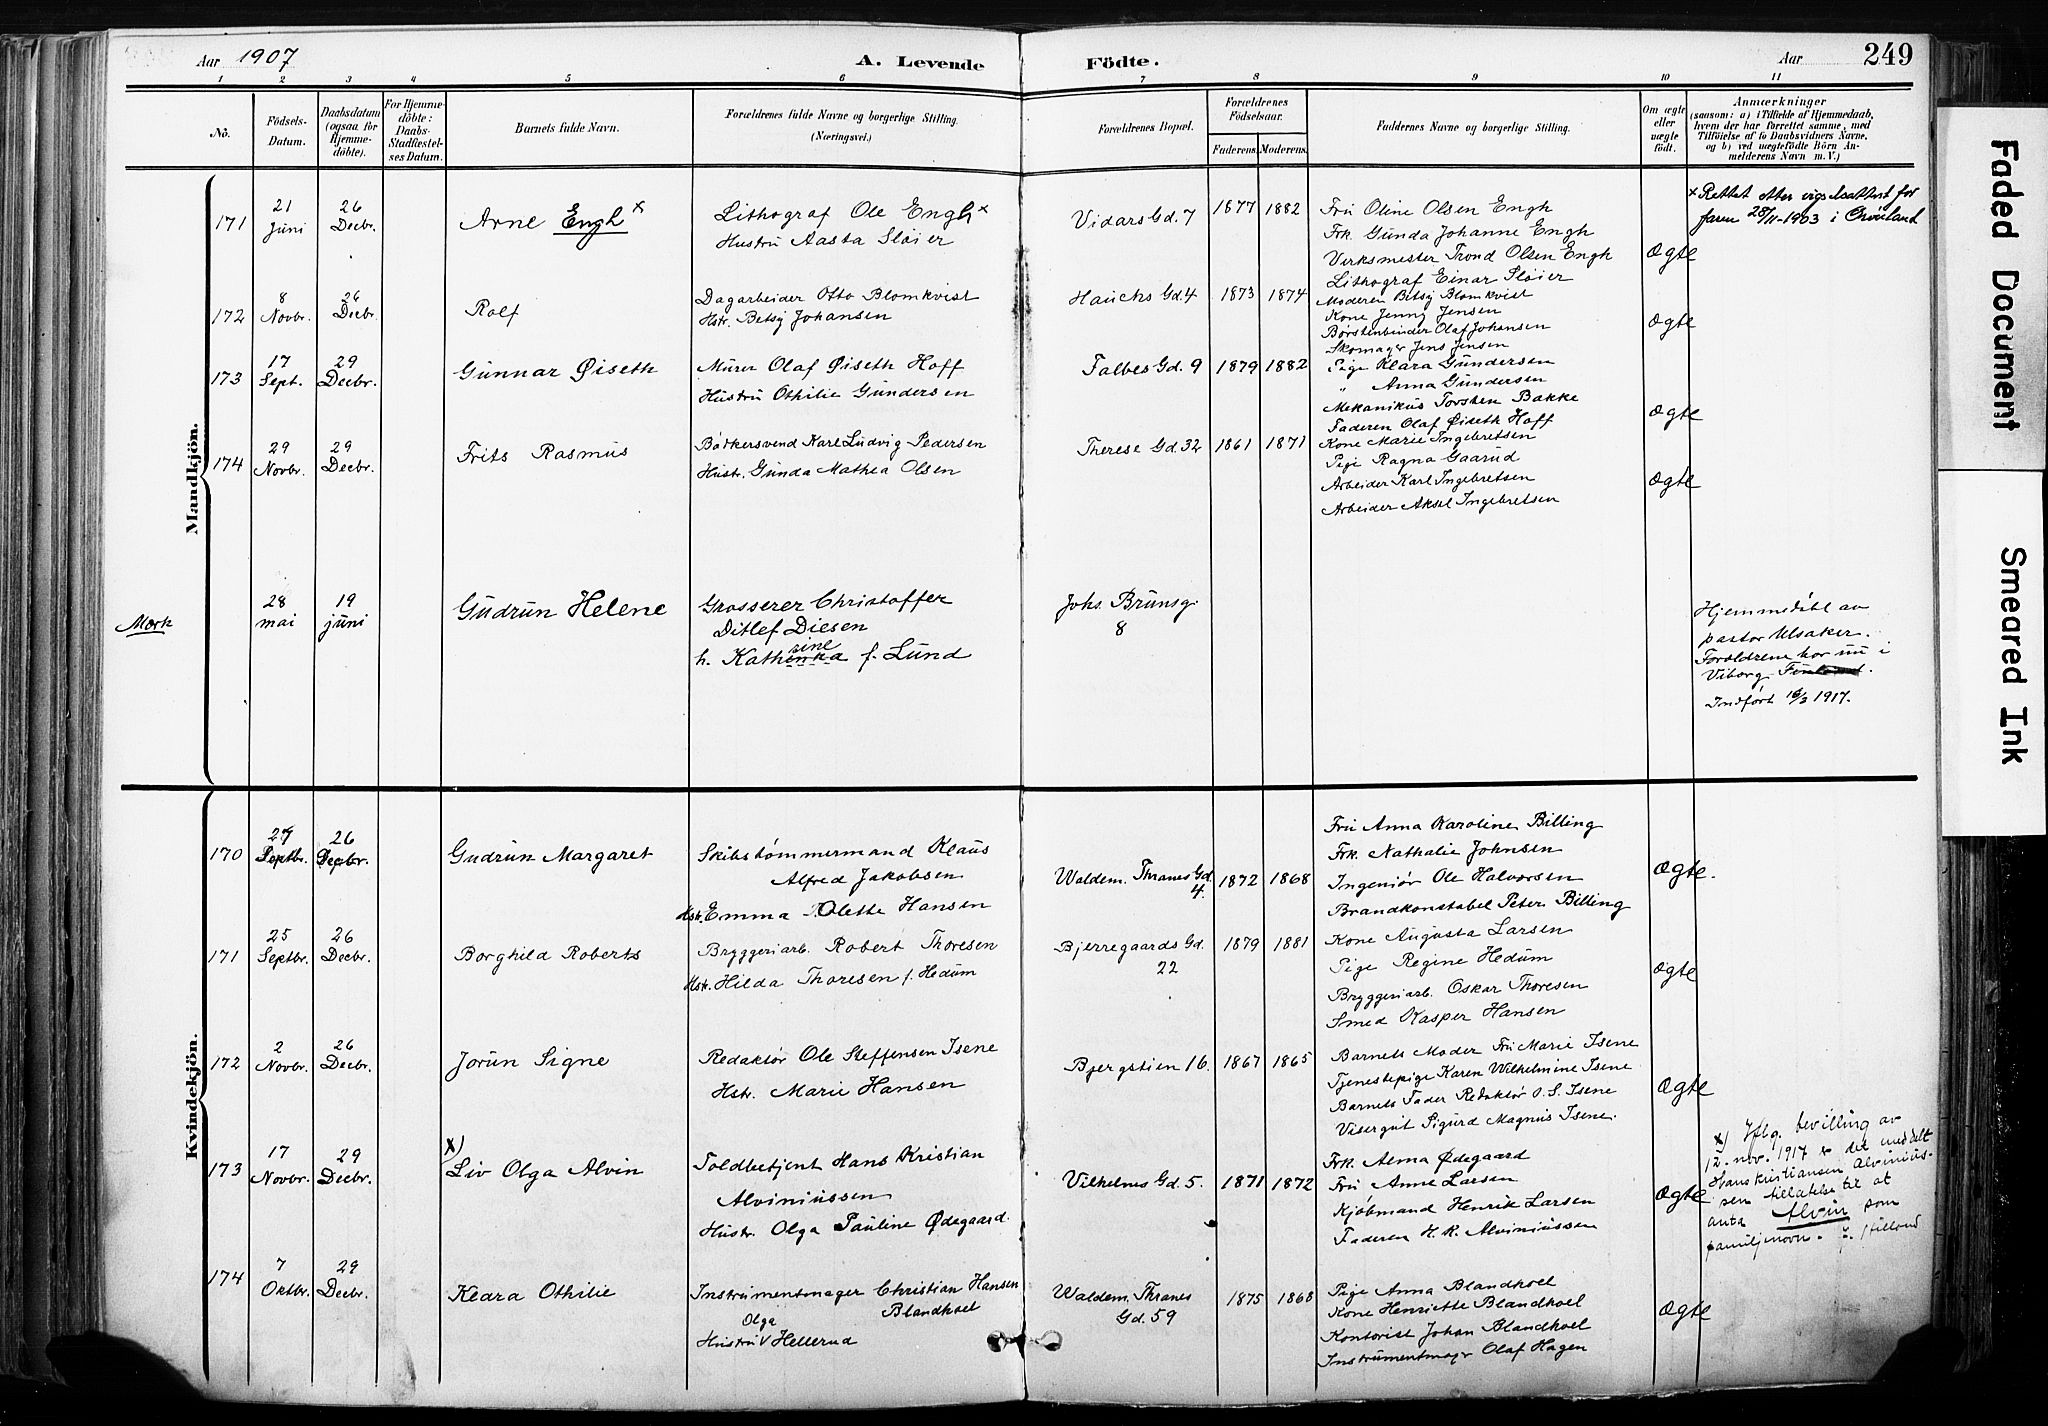 Aar 1907
A. Levende Födte.
Aar 249
1 2 3 4 5 6 7 8 9 10 11
Nô.
Födsels-Datum.
Daabsdatum (ogsaa for Hjemme-döbte).
For Hjemme-döbte: Daabs-Stadfæstel-ses Datum.
Barnets fulde Navn.
Forældrenes fulde Navne og borgerlige Stilling. (Næringsvei.)
Forældrenes Bopæl.
Forældrenes Födselsaar.
Faderens. Moderens.
Faddernes Navne og borgerlige Stilling.
Om ægte eller uægte födt.
Anmærkninger
(saasom: a) i Tilfælde af Hjemmedaab, hvem der har forrettet samme, med Tilföielse af to Daabsvidners Navne, og b) ved uægtefödte Börn An-melderens Navn m. V.)
Mandkjön.
171
21 Juni
26 Decbr.
Arne Engh x
Lithograf Ole Engh x
Hustru Aasta Sløier
Vidars Gd. 7
1877 1882
Fru Oline Olsen Engh
Frk. Gunda Johanne Engh
Verksmester Trond Olsen Engh
Lithograf Einar Sløier
Ægte
x Rettet etter vigselsattest for
faren 28/11-1903 i Grønland
172
8 Novbr.
26 Decbr.
Rolf
Dagarbeider Otto Blomkvist
Hstr. Betsy Johansen
Hauchs Gd. 4
1873 1874
Moderen Betsy Blomkvist
Kone Jenny Jensen
Børstenbinder Olaf Johansen
Skomager Jens Jensen
Ægte
173
17 Sept.
29 Decbr.
Gunnar Øiseth
Murer Olaf Øiseth Hoff
Hustru Othilie Gundersen
Falbes Gd. 9
1879 1882
Pige Klara Gundersen
" Anna Gundersen
Mekanikus Torsten Bakke
Faderen Olaf Øiseth Hoff
Ægte
174
29 Novbr.
29 Decbr.
Frits Rasmus
Bødkersvend Karl Ludvig Pedersen
Hustr. Gunda Mathea Olsen
Therese Gd. 32
1861 1871
Kone Marie Ingebretsen
Pige Ragna Gaarud
Arbeider Karl Ingebretsen
Arbeider Aksel Ingebretsen
Ægte
Mærk
28 mai
19 juni
Gudrun Helene
Grosserer Christoffer
Ditlef Diesen
sine
h. Kathinka f. Lund
Johs. Brunsg.
8
Hjemmedøbt av
pastor Ulsaker.
Foreldrene bor nu i
Viborg Finland.
Indført 16/3 1917.
Kvindekjön.
170
27 Septbr.
26 Decbr.
Gudrun Margaret
Skibstømmermand Klaus
Alfred Jakobsen
Hstr. Emma Olette Hansen
Waldem. Thranes Gd. 4.
1872 1868
Fru Anna Karoline Billing
Frk. Nathalie Johnsen
Ingeniør Ole Halvorsen
Brandkonstabel Peter Billing
Ægte.
171
25 Septbr.
26 Decbr.
Borghild Roberts
Bryggeriarb. Robert Thoresen
Hstr. Hilda Thoresen f. Hedum
Bjerregaards Gd. 22
1879 1881
Kone Augusta Larsen
Pige Regine Hedum
Bryggeriarb. Oskar Thoresen
Smed Kasper Hansen
Ægte
172
2 Novbr.
26 Decbr.
Jorun Signe
Redaktør Ole Steffensen Isene
Hstr. Marie Hansen
Bjergstien 16.
1867 1865
Barnets Moder Fru Marie Isene
Tjenestepige Karen Wilhelmine Isene
Barnets Fader Redaktør O. S. Isene
Visergut Sigurd Magnus Isene.
Ægte
173
17 Novbr.
29 Decbr.
x)
Liv Olga Alvin
Toldbetjent Hans Kristian
Alviniussen
Hustr. Olga Pauline Ødegaard.
Vilhelms Gd. 5.
1871 1872
Frk. Alma Ødegaard
Fru Anne Larsen
Kjøbmand Henrik Larsen
Faderen H. K. Alviniussen
Ægte
x) Iflg. bevilling av
12. nov. 1917 er det meddelt
Hans Kristiansen Alvinius-
sen tillatelse til at
anta Alvin som
familjenavn.
174
7 Oktbr.
29 Decbr.
Klara Othilie
Instrumentmager Christian Hansen
Blandkoel
Olga
Hustru V Hellerud
Waldem. Thranes
Gd. 59
1875 1868
Pige Anna Blandkoel
Kone Henriette Blandkoel
Kontorist Johan Blandkoel
Instrumentmagr Olaf Hagen
Ægte
Faded Document
Smeared Ink